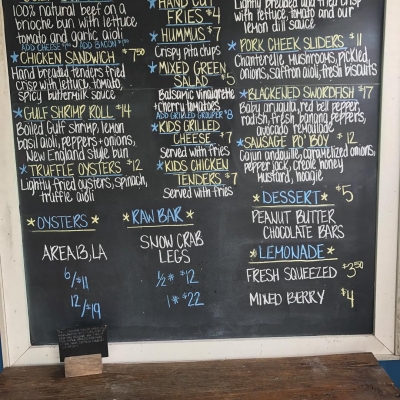 100% natural beef on a
brioche bun with lettuce
tomato and garlic aioli
ADD CHEESE ADD BACON
*CHICKEN SANDWICH * 7.50
Hand breaded tenders fried
crisp with lettuce, tomato,
spicy buttermilk sauce
*GULF SHRIMP ROLL * $14
Boiled Gulf shrimp, lemon
basil aioli, peppers + onions,
New England style bun
*TRUFFLE OYSTERS * $12
Lightly fried oysters, spinach,
truffle aioli
*OYSTERS*
AREA 13, LA
6/$11
12/$19
*HAND CUT
FRIES * $4
*HUMMUS * $7
Crispy pita chips
*MIXED GREEN
SALAD * $5
Balsamic vinaigrette
+ cherry tomatoes
ADD GRILLED GROUPER $8
*KIDS GRILLED
CHEESE * $7
Served with fries
*KIDS CHICKEN
TENDERS * $7
Served with fries
*RAW BAR*
SNOW CRAB
LEGS
1/2# * $12
1# * $22
Lightly breaded and fried crisp
with lettuce, tomato and our
lemon dill sauce
*PORK CHEEK SLIDERS * $11
Chanterelle, mushrooms, pickled
onions, saffron aioli, fresh biscuits
*BLACKENED SWORDFISH * $17
Baby arugula, red bell pepper,
radish, fresh banana peppers,
avocado remoulade
*SAUSAGE PO' BOY * $12
Cajun andouille, caramelized onions,
pepper jack, creole honey
mustard, hoagie
*DESSERT* $5
PEANUT BUTTER
CHOCOLATE BARS
*LEMONADE*
FRESH SQUEEZED $3.50
MIXED BERRY * $4